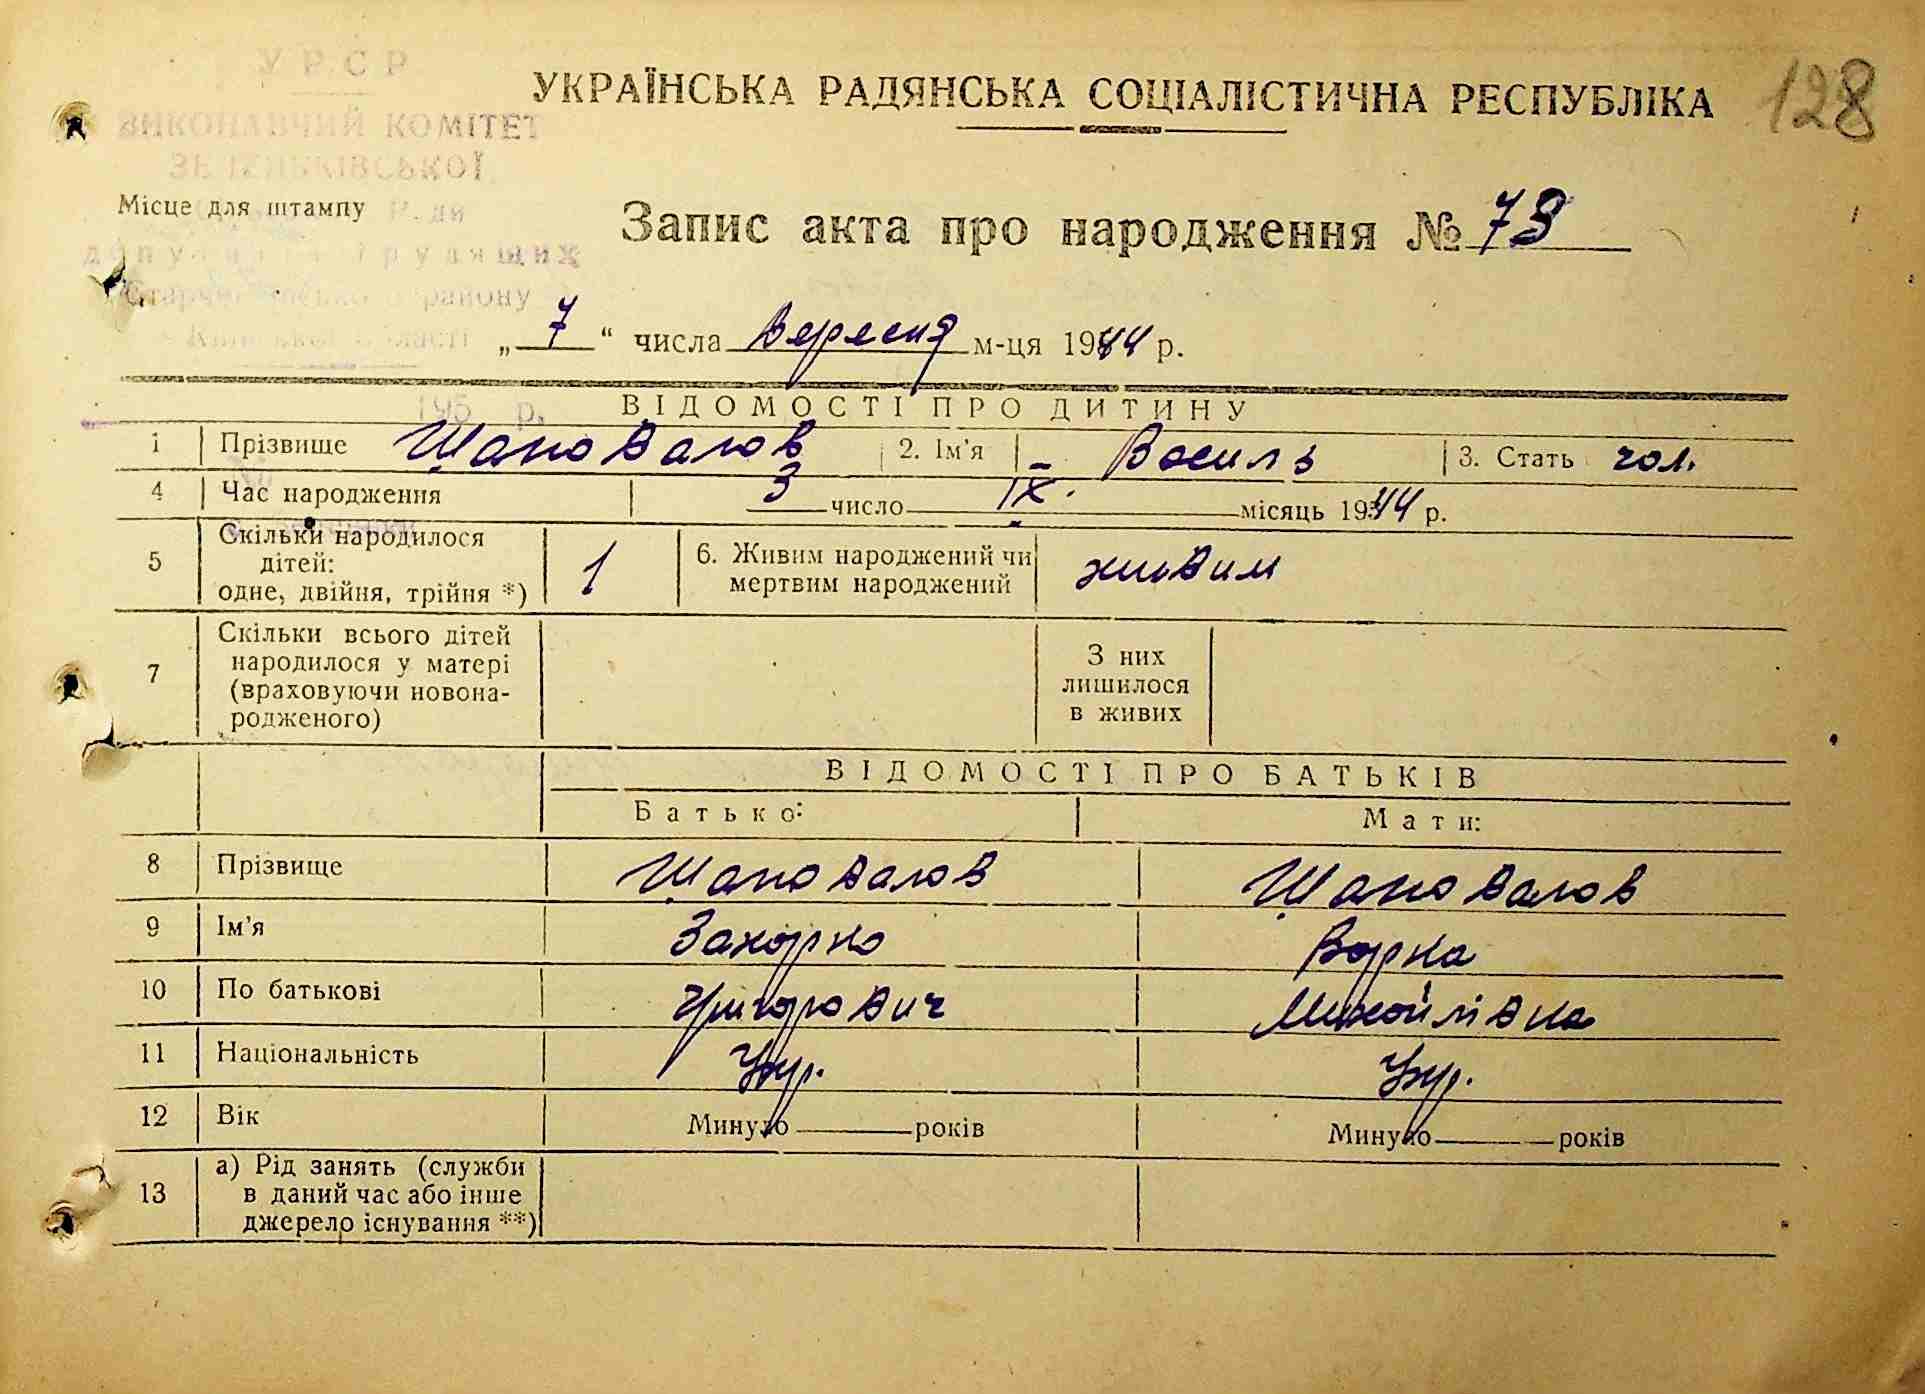 УРСР
УКРАЇНСЬКА РАДЯНСЬКА СОЦІАЛІСТИЧНА РЕСПУБЛІКА 128
ВИКОНАВЧИЙ КОМІТЕТ
Місце для штампу
Запис акта про народження № 73
району
„7“ числа Вересня м-ця 1944 р.
195 р.
ВІДОМОСТІ ПРО ДИТИНУ
1 Прізвище Шаповалов 2. Ім'я Василь 3. Стать чол.
4 Час народження 3 число IX. місяць 1944 р.
5 Скільки народилося дітей: одне, двійня, трійня *) 1 6. Живим народжений чи мертвим народжений живим
7 Скільки всього дітей народилося у матері (враховуючи новонародженого) З них лишилося в живих
ВІДОМОСТІ ПРО БАТЬКІВ
Батько: Мати:
8 Прізвище Шаповалов Шаповалов
9 Ім'я Захарко Варка
10 По батькові Григорович Михайлівна
11 Національність Укр. Укр.
12 Вік Минуло років Минуло років
13 а) Рід занять (служби в даний час або інше джерело існування **)